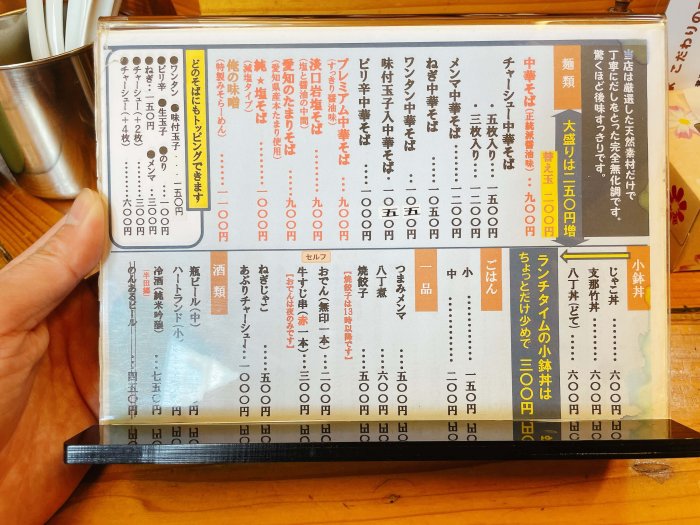 当店は厳選した天然素材だけで
丁寧にだしをとった完全無化調です。
驚くほど後味すっきりです。
麺類
大盛りは二五〇円増
替え玉 二〇〇円
中華そば(正統派醤油味)‥九〇〇円
チャーシュー中華そば
‥五枚入り‥一五〇〇円
‥三枚入り‥一二〇〇円
メンマ中華そば‥‥一二〇〇円
ねぎ中華そば‥‥一〇五〇円
ワンタン中華そば‥一〇五〇円
味付玉子入中華そば‥一〇五〇円
ピリ辛中華そば‥‥一〇〇〇円
プレミアム中華そば‥九〇〇円
(すっきり醤油味)
淡口岩塩そば‥‥九〇〇円
(塩と醤油の中間)
愛知のたまりそば‥九〇〇円
(愛知県産本たまり使用)
純★塩そば‥‥九〇〇円
(減塩タイプ)
俺の味噌‥‥一一〇〇円
(特製みそらーめん)
どのそばにもトッピングできます
●ワンタン ●味付玉子‥一五〇円
●ピリ辛 ●生玉子 ●のり‥一〇〇円
●ねぎ‥一五〇円 ●メンマ‥三〇〇円
●チャーシュー(+2枚)‥三〇〇円
●チャーシュー(+4枚)‥六〇〇円
小鉢丼
じゃこ丼‥‥六〇〇円
支那竹丼‥‥六〇〇円
八丁丼(どて)‥六〇〇円
ランチタイムの小鉢丼は
ちょっとだけ少めで 三〇〇円
ごはん
小‥‥一五〇円
中‥‥二〇〇円
一品
つまみメンマ‥‥五〇〇円
八丁煮‥‥六〇〇円
焼餃子‥‥五〇〇円
[焼餃子は13時以降です]
セルフ
おでん(無印一本)‥二〇〇円
牛すじ串(赤一本)‥三〇〇円
[おでんは夜のみです]
ねぎじゃこ‥‥五〇〇円
あぶりチャーシュー‥一〇〇〇円
酒類
瓶ビール(中)
ハートランド(小)
冷酒(純米吟醸)‥七五〇円
[半田郷]
のんあるビール‥四五〇円